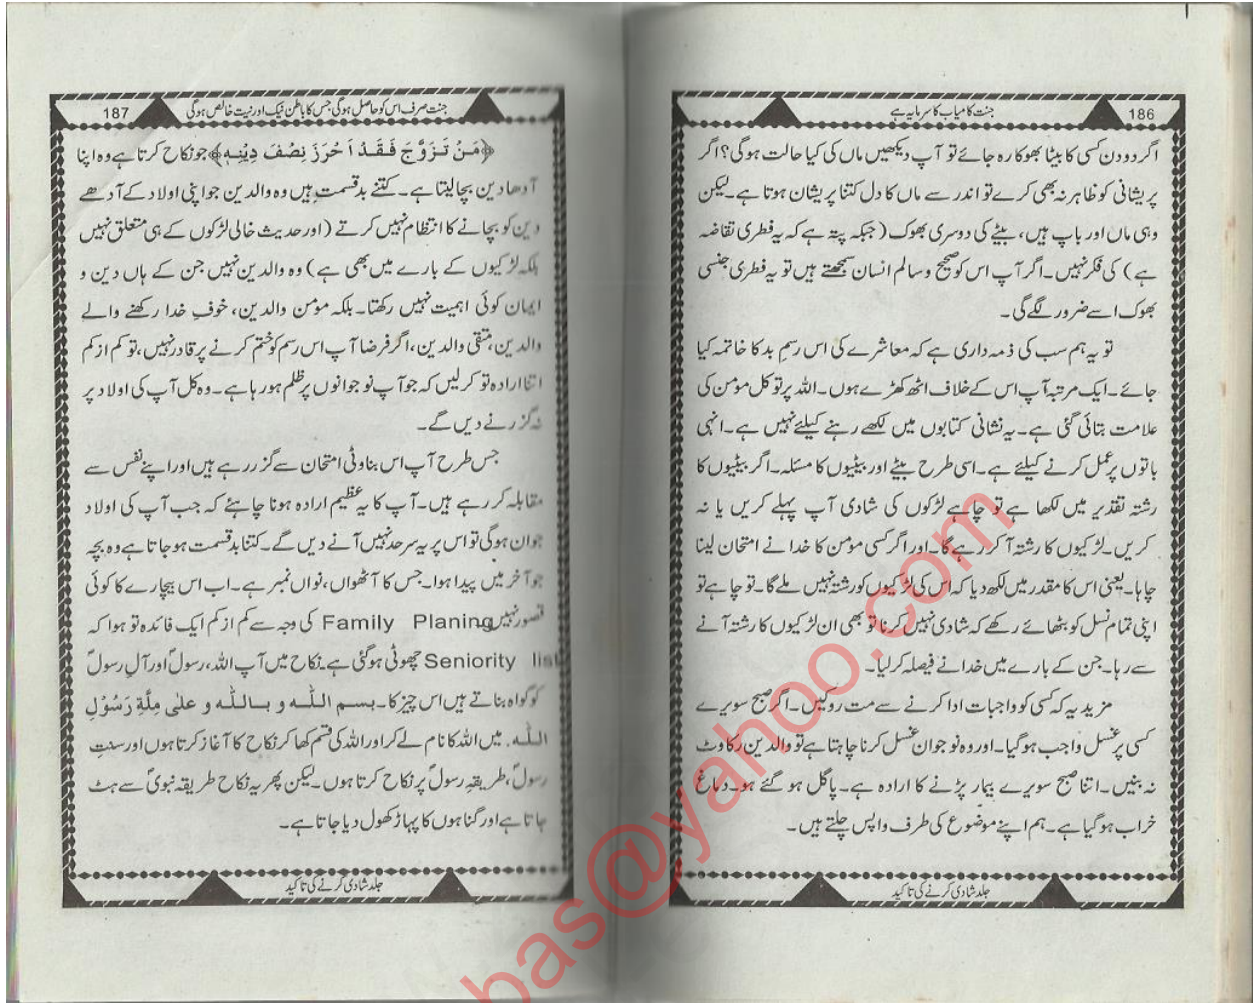 186
جنت کامیاب کا سرمایہ ہے
اگر دو دن کسی کا بیٹا بھوکا رہ جائے تو آپ دیکھیں ماں کی کیا حالت ہوگی؟ اگر
پریشانی کو ظاہر نہ بھی کرے تو اندر سے ماں کا دل کتنا پریشان ہوتا ہے۔ لیکن
وہی ماں اور باپ ہیں، بیٹے کی دوسری بھوک (جبکہ پتہ ہے کہ یہ فطری تقاضہ
ہے) کی فکر نہیں۔ اگر آپ اس کو صحیح و سالم انسان سمجھتے ہیں تو یہ فطری جنسی
بھوک اسے ضرور لگے گی۔
تو یہ ہم سب کی ذمہ داری ہے کہ معاشرے کی اس رسمِ بد کا خاتمہ کیا
جائے۔ ایک مرتبہ آپ اس کے خلاف اٹھ کھڑے ہوں۔ اللہ پر توکل مومن کی
علامت بتائی گئی ہے۔ یہ نشانی کتابوں میں لکھے رہنے کیلئے نہیں ہے۔ انہی
باتوں پر عمل کرنے کیلئے ہے۔ اسی طرح بیٹے اور بیٹیوں کا مسئلہ۔ اگر بیٹیوں کا
رشتہ تقدیر میں لکھا ہے تو چاہے لڑکوں کی شادی آپ پہلے کریں یا نہ
کریں۔ لڑکیوں کا رشتہ آ کر رہے گا۔ اور اگر کسی مومن کا خدا نے امتحان لینا
چاہا۔ یعنی اس کا مقدر میں لکھ دیا کہ اس کی لڑکیوں کو رشتہ نہیں ملے گا۔ تو چاہے تو
اپنی تمام نسل کو بٹھائے رکھے کہ شادی نہیں کرنا تو بھی ان لڑکیوں کا رشتہ آنے
سے رہا۔ جن کے بارے میں خدا نے فیصلہ کر لیا۔
مزید یہ کہ کسی کو واجبات ادا کرنے سے مت روکیں۔ اگر صبح سویرے
کسی پر غسل واجب ہو گیا۔ اور وہ نوجوان غسل کرنا چاہتا ہے تو والدین رکاوٹ
نہ بنیں۔ اتنا صبح سویرے بیمار پڑنے کا ارادہ ہے۔ پاگل ہو گئے ہو۔ دماغ
خراب ہو گیا ہے۔ ہم اپنے موضوع کی طرف واپس چلتے ہیں۔
جلد شادی کرنے کی تاکید
جنت صرف اس کو حاصل ہوگی جس کا باطن نیک اور نیت خالص ہوگی
187
﴿مَنْ تَزَوَّجَ فَقَدْ اَحْرَزَ نِصْفَ دِیْنِهٖ﴾ جو نکاح کرتا ہے وہ اپنا
آدھا دین بچا لیتا ہے۔ کتنے بدقسمت ہیں وہ والدین جو اپنی اولاد کے آدھے
دین کو بچانے کا انتظام نہیں کرتے (اور حدیث خالی لڑکوں کے ہی متعلق نہیں
بلکہ لڑکیوں کے بارے میں بھی ہے) وہ والدین نہیں جن کے ہاں دین و
ایمان کوئی اہمیت نہیں رکھتا۔ بلکہ مومن والدین، خوفِ خدا رکھنے والے
والدین، متقی والدین، اگر فرضاً آپ اس رسم کو ختم کرنے پر قادر نہیں، تو کم از کم
اتنا ارادہ تو کر لیں کہ جو آپ نوجوانوں پر ظلم ہو رہا ہے۔ وہ کل آپ کی اولاد پر
نہ گزرنے دیں گے۔
جس طرح آپ اس بناوٹی امتحان سے گزر رہے ہیں اور اپنے نفس سے
مقابلہ کر رہے ہیں۔ آپ کا یہ عظیم ارادہ ہونا چاہئے کہ جب آپ کی اولاد
جوان ہوگی تو اس پر یہ سرحد نہیں آنے دیں گے۔ کتنا بدقسمت ہو جاتا ہے وہ بچہ
جو آخر میں پیدا ہوا۔ جس کا آٹھواں، نواں نمبر ہے۔ اب اس بیچارے کا کوئی
قصور نہیں Family Planing کی وجہ سے کم از کم ایک فائدہ تو ہوا کہ
Seniority list چھوٹی ہو گئی ہے۔ نکاح میں آپ اللہ، رسولؐ اور آلِ رسولؐ
کو گواہ بناتے ہیں اس چیز کا۔ بسم اللّٰه و بالـلّٰه و علیٰ مِلَّةِ رَسُوْلِ
اللّٰه۔ میں اللہ کا نام لے کر اور اللہ کی قسم کھا کر نکاح کا آغاز کرتا ہوں اور سنتِ
رسولؐ، طریقہِ رسولؐ پر نکاح کرتا ہوں۔ لیکن پھر یہ نکاح طریقہ نبویؐ سے ہٹ
جاتا ہے اور گناہوں کا پہاڑ کھول دیا جاتا ہے۔
جلد شادی کرنے کی تاکید
bas@yahoo.com